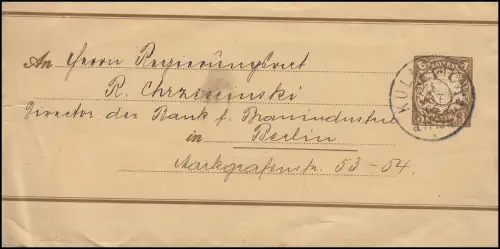 An Herrn Regierungsrat
R. Chrzescinski
Director der Bank f. Brauindustrie
in Berlin
Markgrafenstr. 53-54.
BAYERN
KUL